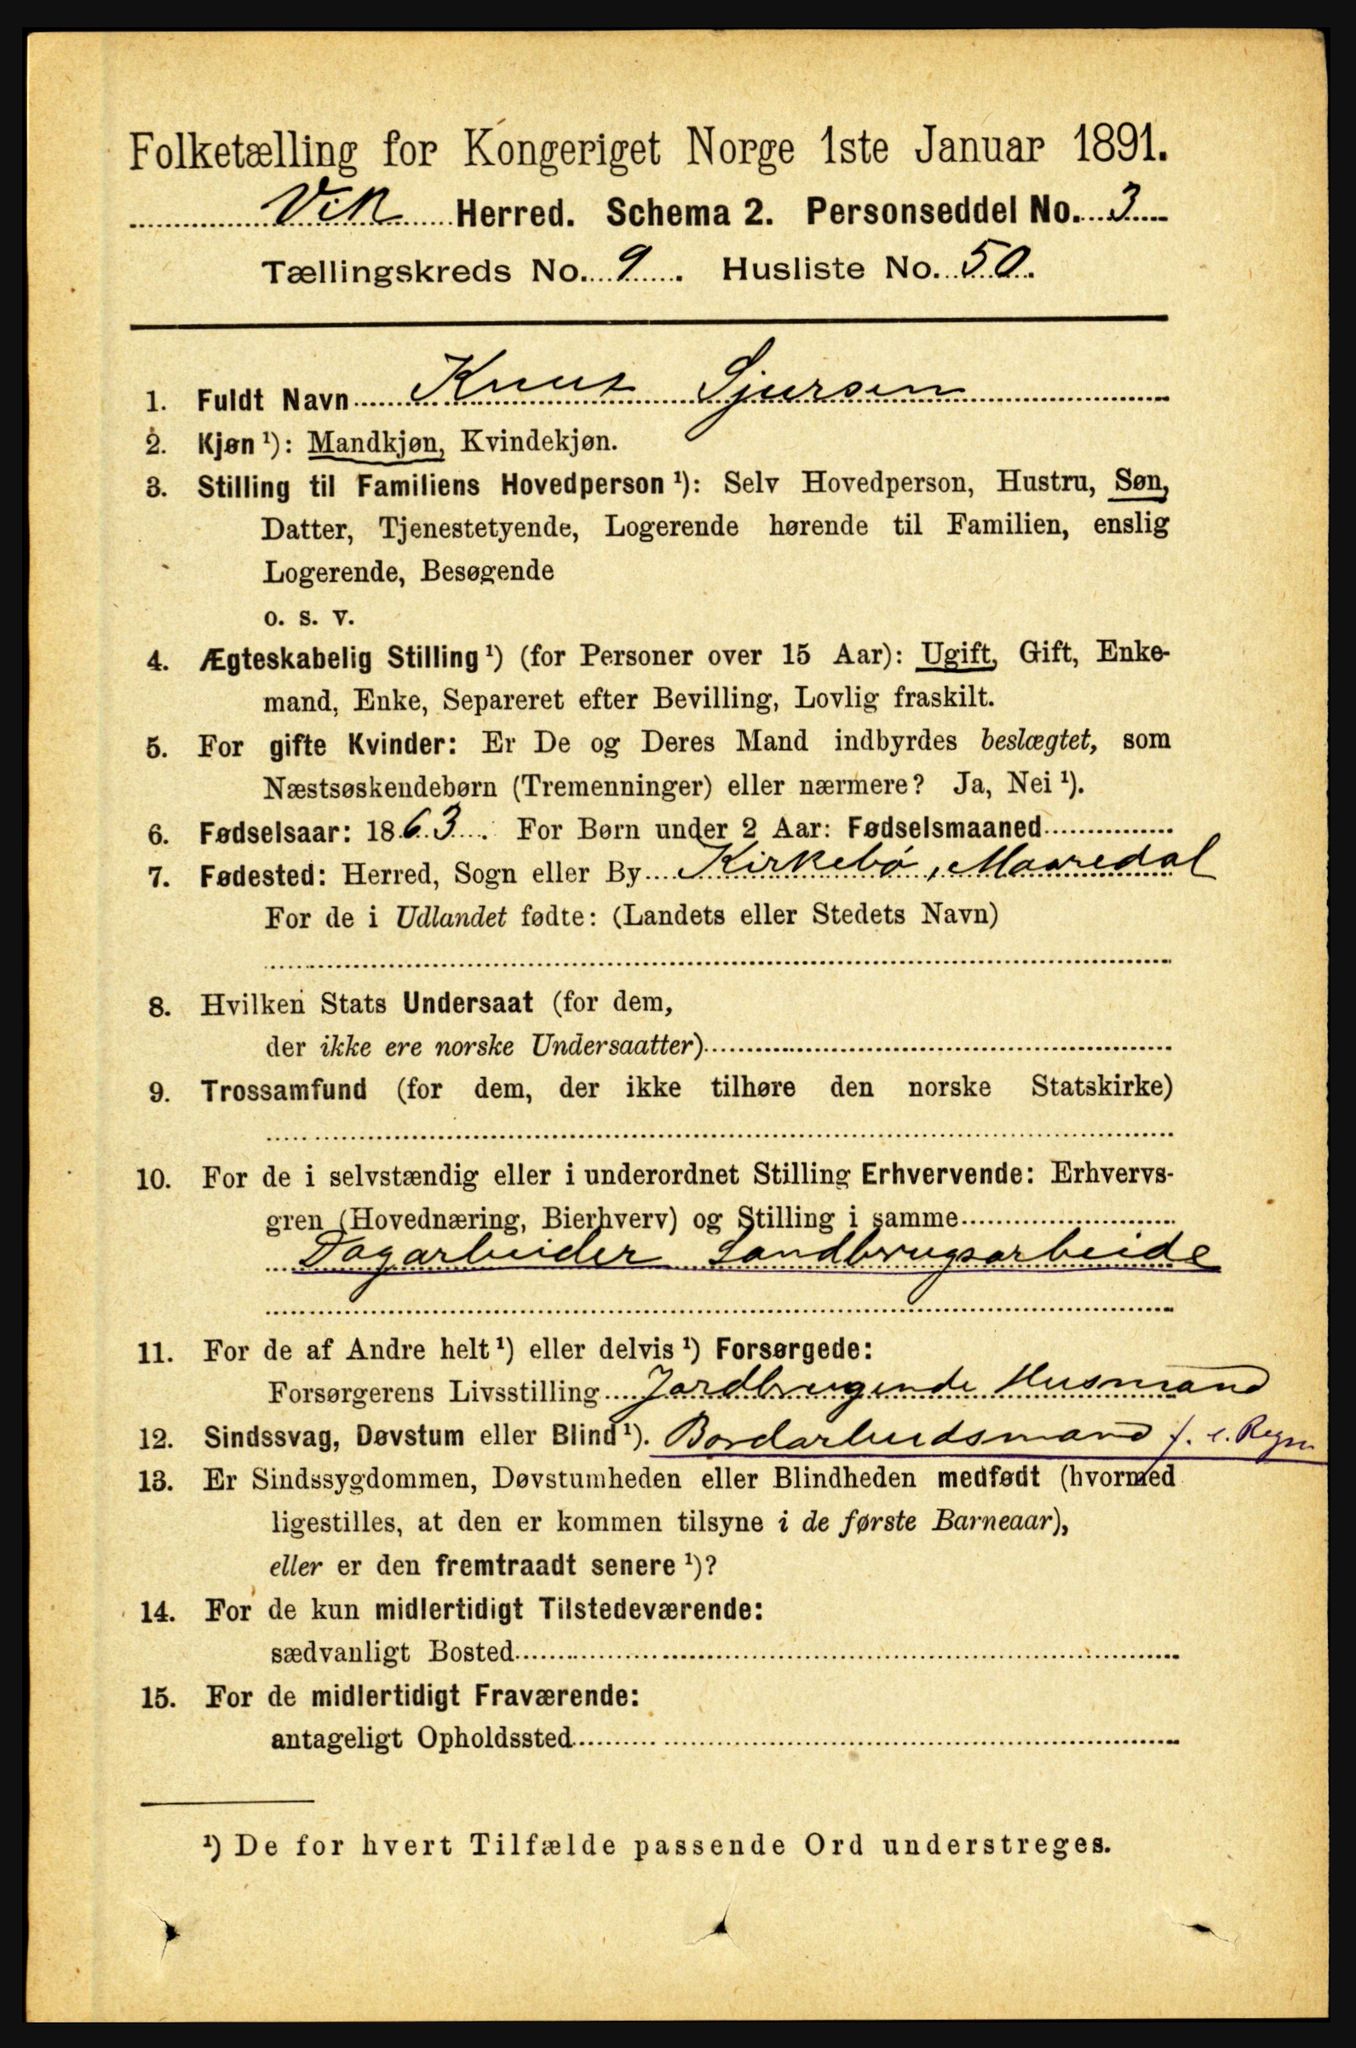 Folketælling for Kongeriget Norge 1ste Januar 1891.
Vik Herred. Schema 2. Personseddel No. 3
Tællingskreds No. 9. Husliste No. 50.
1. Fuldt Navn Knut Sjursen
2. Kjøn ¹): Mandkjøn, Kvindekjøn.
3. Stilling til Familiens Hovedperson ¹): Selv Hovedperson, Hustru, Søn,
Datter, Tjenestetyende, Logerende hørende til Familien, enslig
Logerende, Besøgende
o. s. v.
4. Ægteskabelig Stilling ¹) (for Personer over 15 Aar): Ugift, Gift, Enke-
mand, Enke, Separeret efter Bevilling, Lovlig fraskilt.
5. For gifte Kvinder: Er De og Deres Mand indbyrdes beslægtet, som
Næstsøskendebørn (Tremenninger) eller nærmere? Ja, Nei ¹).
6. Fødselsaar: 1863. For Børn under 2 Aar: Fødselsmaaned
7. Fødested: Herred, Sogn eller By Kirkebø, Maaredal
For de i Udlandet fødte: (Landets eller Stedets Navn)
8. Hvilken Stats Undersaat (for dem,
der ikke ere norske Undersaatter)
9. Trossamfund (for dem, der ikke tilhøre den norske Statskirke)
10. For de i selvstændig eller i underordnet Stilling Erhvervende: Erhvervs-
gren (Hovednæring, Bierhverv) og Stilling i samme
Dagarbeider Landbrugsarbeide
11. For de af Andre helt ¹) eller delvis ¹) Forsørgede:
Forsørgerens Livsstilling Jordbrugende Husmand
12. Sindssvag, Døvstum eller Blind ¹). Bordarbeidsmand f. e. Regn
13. Er Sindssygdommen, Døvstumheden eller Blindheden medfødt (hvormed
ligestilles, at den er kommen tilsyne i de første Barneaar),
eller er den fremtraadt senere ¹)?
14. For de kun midlertidigt Tilstedeværende:
sædvanligt Bosted
15. For de midlertidigt Fraværende:
antageligt Opholdssted
¹) De for hvert Tilfælde passende Ord understreges.